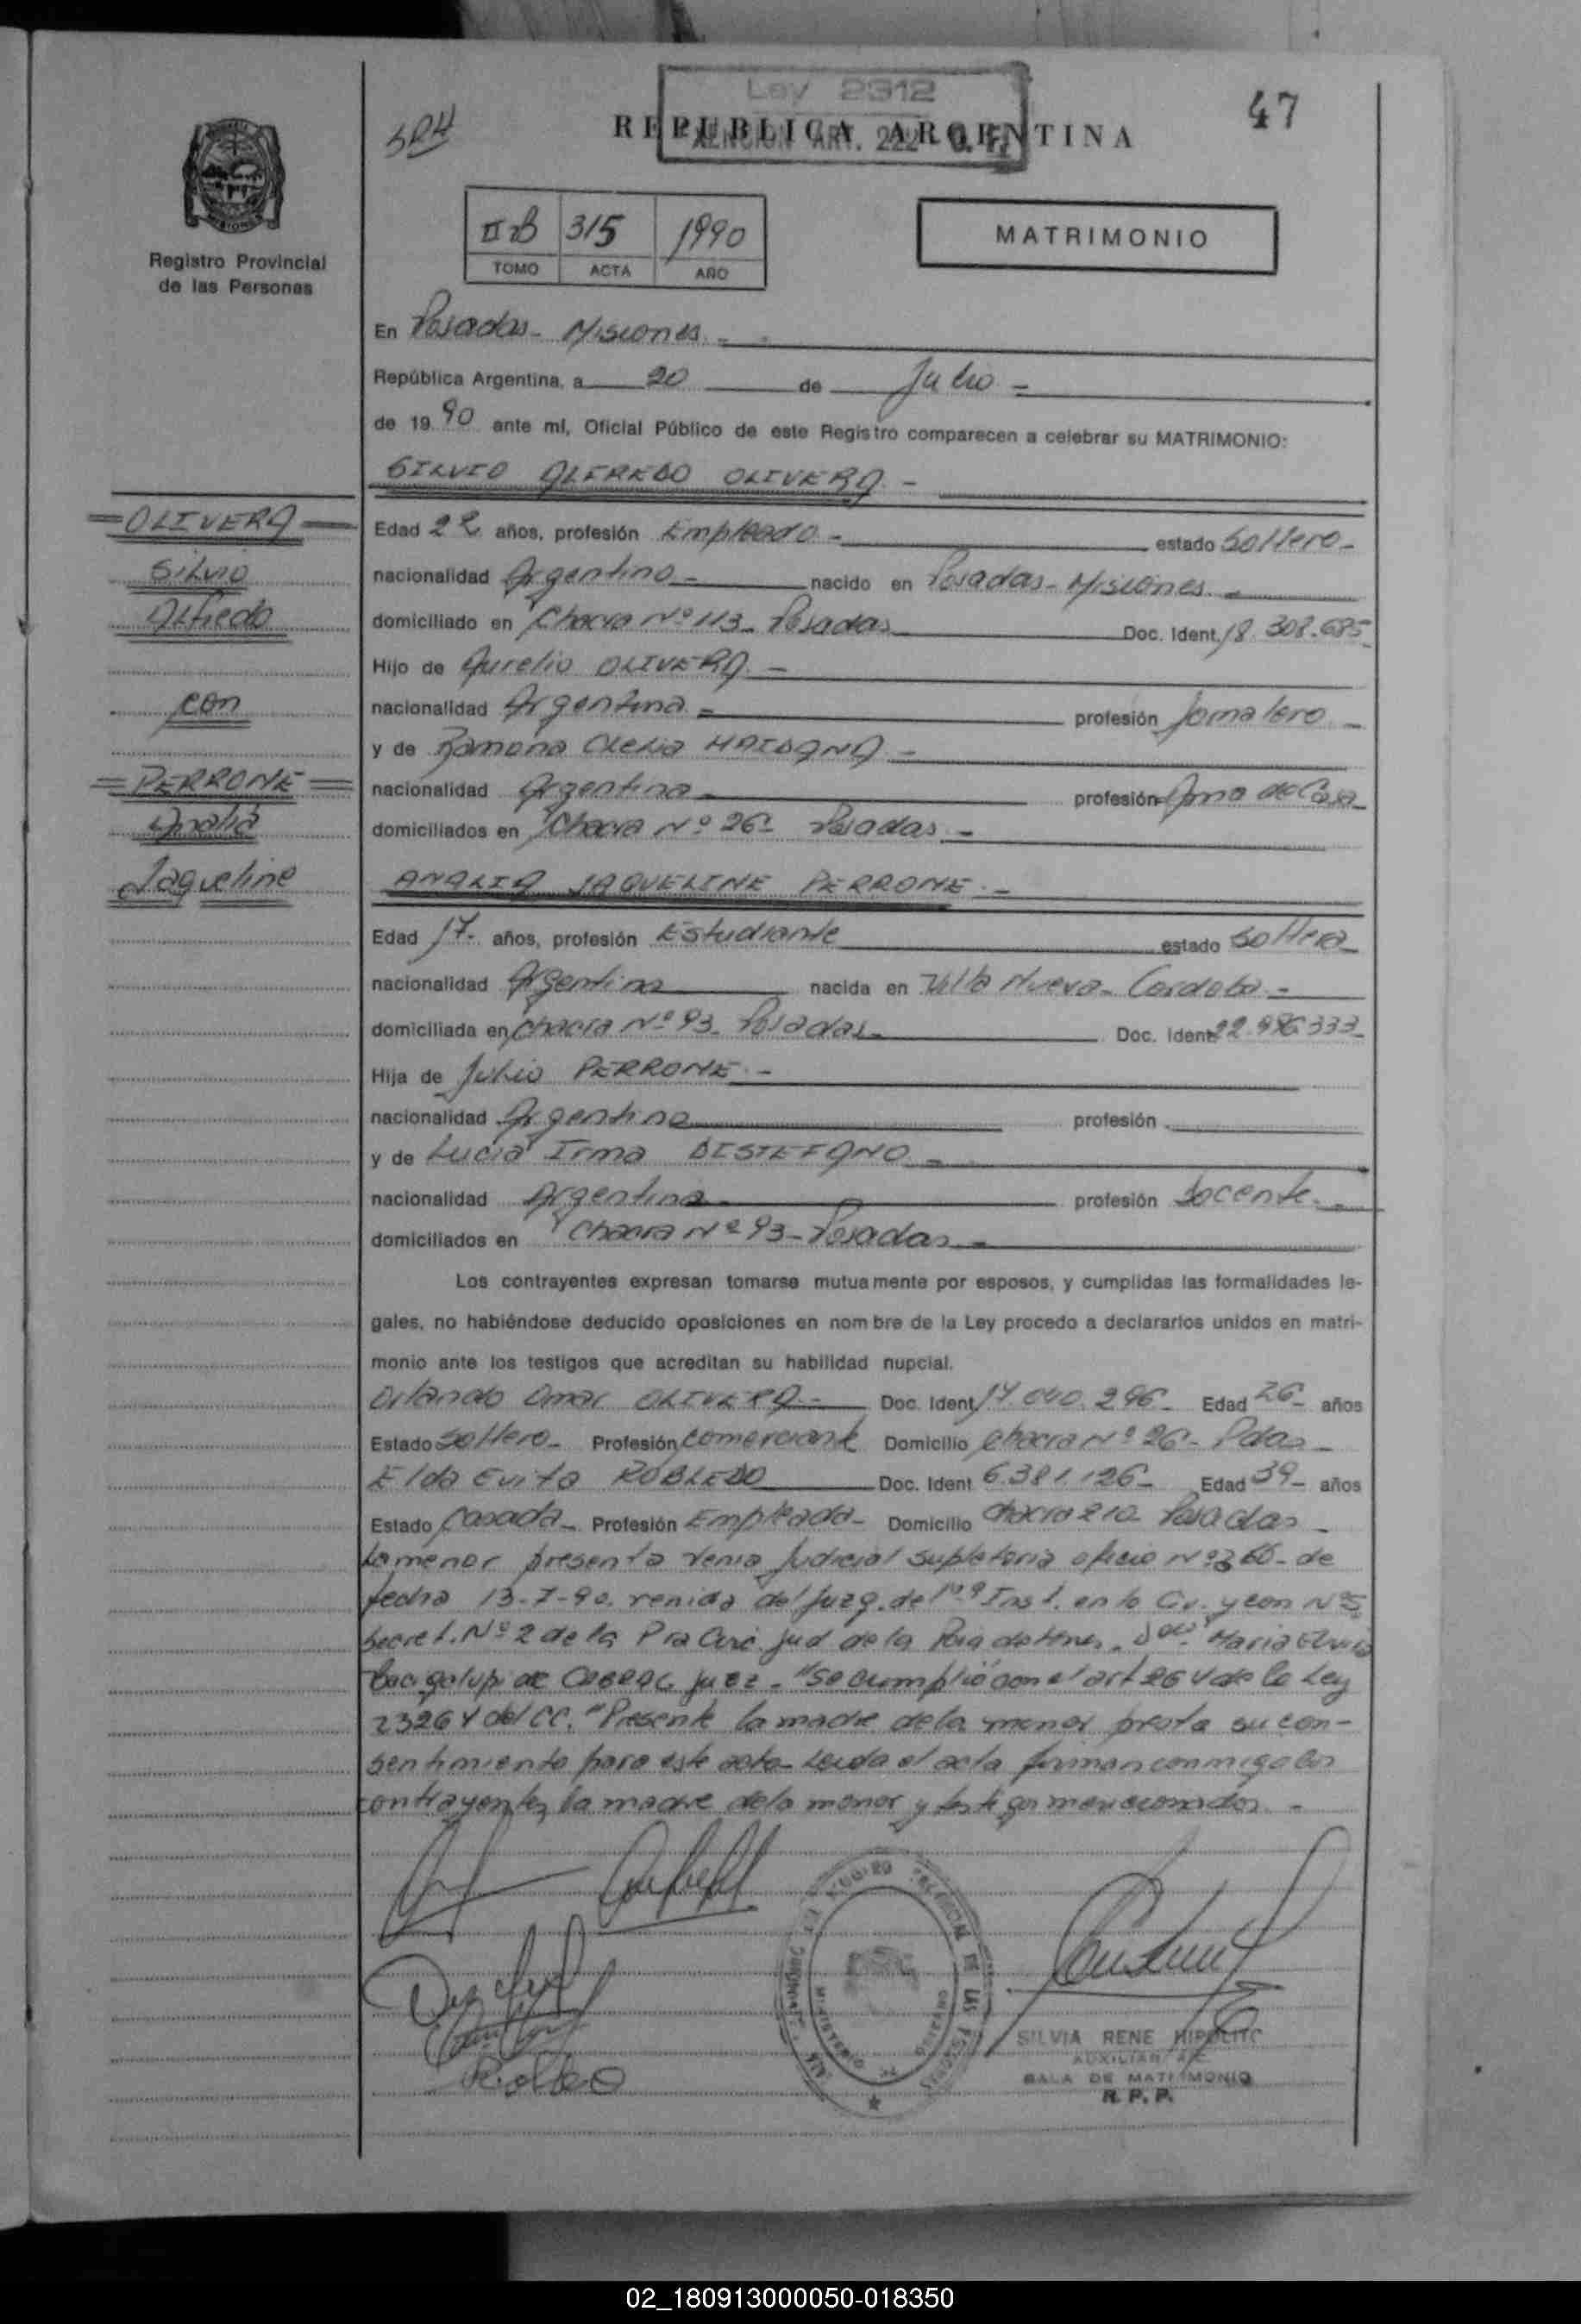 Ley 2312
47
REPUBLICA ARGENTINA
EXENCION ART. 222
II B 315 1990
TOMO ACTA AÑO
MATRIMONIO
Registro Provincial
de las Personas
En Posadas - Misiones -
República Argentina, a 20 de Julio -
de 19 90 ante mí, Oficial Público de este Registro comparecen a celebrar su MATRIMONIO:
SILVIO ALFREDO OLIVERA -
= OLIVERA =
Silvio
Alfredo
con
= PERRONE =
Analia
Jaqueline
Edad 22 años, profesión Empleado - estado Soltero -
nacionalidad Argentino - nacido en Posadas - Misiones -
domiciliado en Chacra Nº 113 - Posadas Doc. Ident. 18.308.685
Hijo de Aurelio OLIVERA -
nacionalidad Argentina - profesión Jornalero -
y de Ramona Clelia MAIDANA -
nacionalidad Argentina - profesión Ama de Casa
domiciliados en Chacra Nº 26 - Posadas -
ANALIA JAQUELINE PERRONE -
Edad 17 - años, profesión Estudiante estado Soltera
nacionalidad Argentina nacida en Villa Nueva - Cordoba -
domiciliada en Chacra Nº 93 - Posadas - Doc. Ident. 22.996.333 -
Hija de Julio PERRONE -
nacionalidad Argentina profesión
y de Lucia Irma DISTEFANO -
nacionalidad Argentina - profesión Docente -
domiciliados en Chacra Nº 93 - Posadas -
Los contrayentes expresan tomarse mutuamente por esposos, y cumplidas las formalidades le-
gales, no habiéndose deducido oposiciones en nombre de la Ley procedo a declararlos unidos en matri-
monio ante los testigos que acreditan su habilidad nupcial.
Orlando Omar OLIVERA - Doc. Ident. 17.040.296 - Edad 26 - años
Estado Soltero - Profesión comerciante Domicilio Chacra Nº 26 - Pdas -
Elda Evita ROBLEDO Doc. Ident 6.381.126 - Edad 39 - años
Estado Casada - Profesión Empleada - Domicilio Chacra 210 Posadas -
La menor presenta venia Judicial supletoria oficio Nº 366 - de
fecha 13-7-90. venida del Juzg. de 1ra Inst. en lo Civ. y Com Nº 5
Secret. Nº 2 de la Pra Circ. Jud de la Pcia de Mnes. Dra. Maria Elvira
Bacigalupi de CABRAL Juez - "Se cumplió con el art 264 de la Ley
23264 del CC." Presente la madre de la menor presta su con-
sentimiento para este acto - Leida el acta firman conmigo los
contrayentes, la madre de la menor y testigos mencionados -
SILVIA RENE HIPOLITO
AUXILIAR
SALA DE MATRIMONIO
R. P. P.
02_180913000050-018350